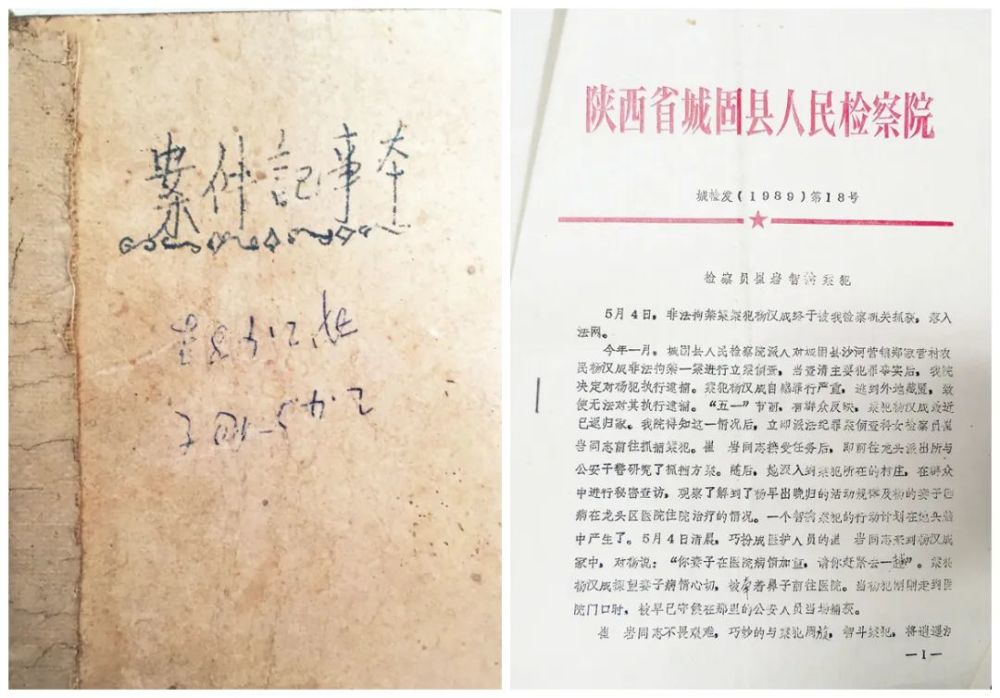 案件記事本
陕西省城固县人民检察院
城检发(1989)第18号
检察员崔岩智擒案犯
5月4日，非法拘禁案案犯杨汉成终于被我检察机关抓获，落入
法网。
今年一月，城固县人民检察院派人对城固县沙河营镇郑家营村农
民杨汉成非法拘禁一案进行立案侦查，当查清主要犯罪事实后，我院
决定对杨犯执行逮捕。案犯杨汉成自知罪行严重，逃到外地藏匿，致
使无法对其执行逮捕。“五一”节前，有群众反映，案犯杨汉成最近
已返归家。我院得知这一情况后，立即派法纪罪案侦查科女检察员崔
岩同志前往抓捕案犯。崔 岩同志接受任务后，即前往龙头派出所与
公安干警研究了抓捕方案。随后，她深入到案犯所在的村庄，在群众
中进行秘密查访，观察了解到了杨早出晚归的活动规律及杨的妻子因
病在龙头区医院住院治疗的情况。一个智擒案犯的行动计划在她头脑
中产生了。5月4日清晨，巧扮成医护人员的崔 岩同志来到杨汉成
家中，对杨说：“你妻子在医院病情加重，请你赶紧去一趟”。案犯
杨汉成探望妻子病情心切，被牵着鼻子前往医院。当杨犯刚刚走到医
院门口时，被早已守候在那里的公安人员当场捕获。
崔 岩同志不畏艰难，巧妙的与案犯周旋，智斗案犯，将逍遥方
—1—